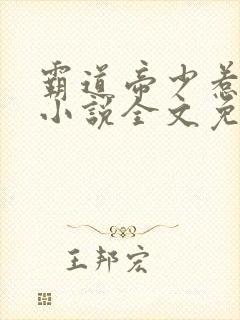 霸道帝少惹
小说全文免
王邦宏